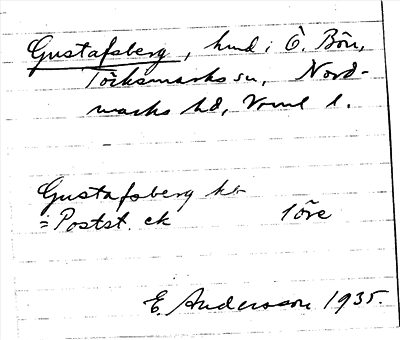 Gustafsberg, hmd i Ö. Bön,
Töcksmarks sn, Nord-
marks hd, Vrml l.
Gustafsberg kb
= Postst. ek 1öre
E. Andersson 1935.